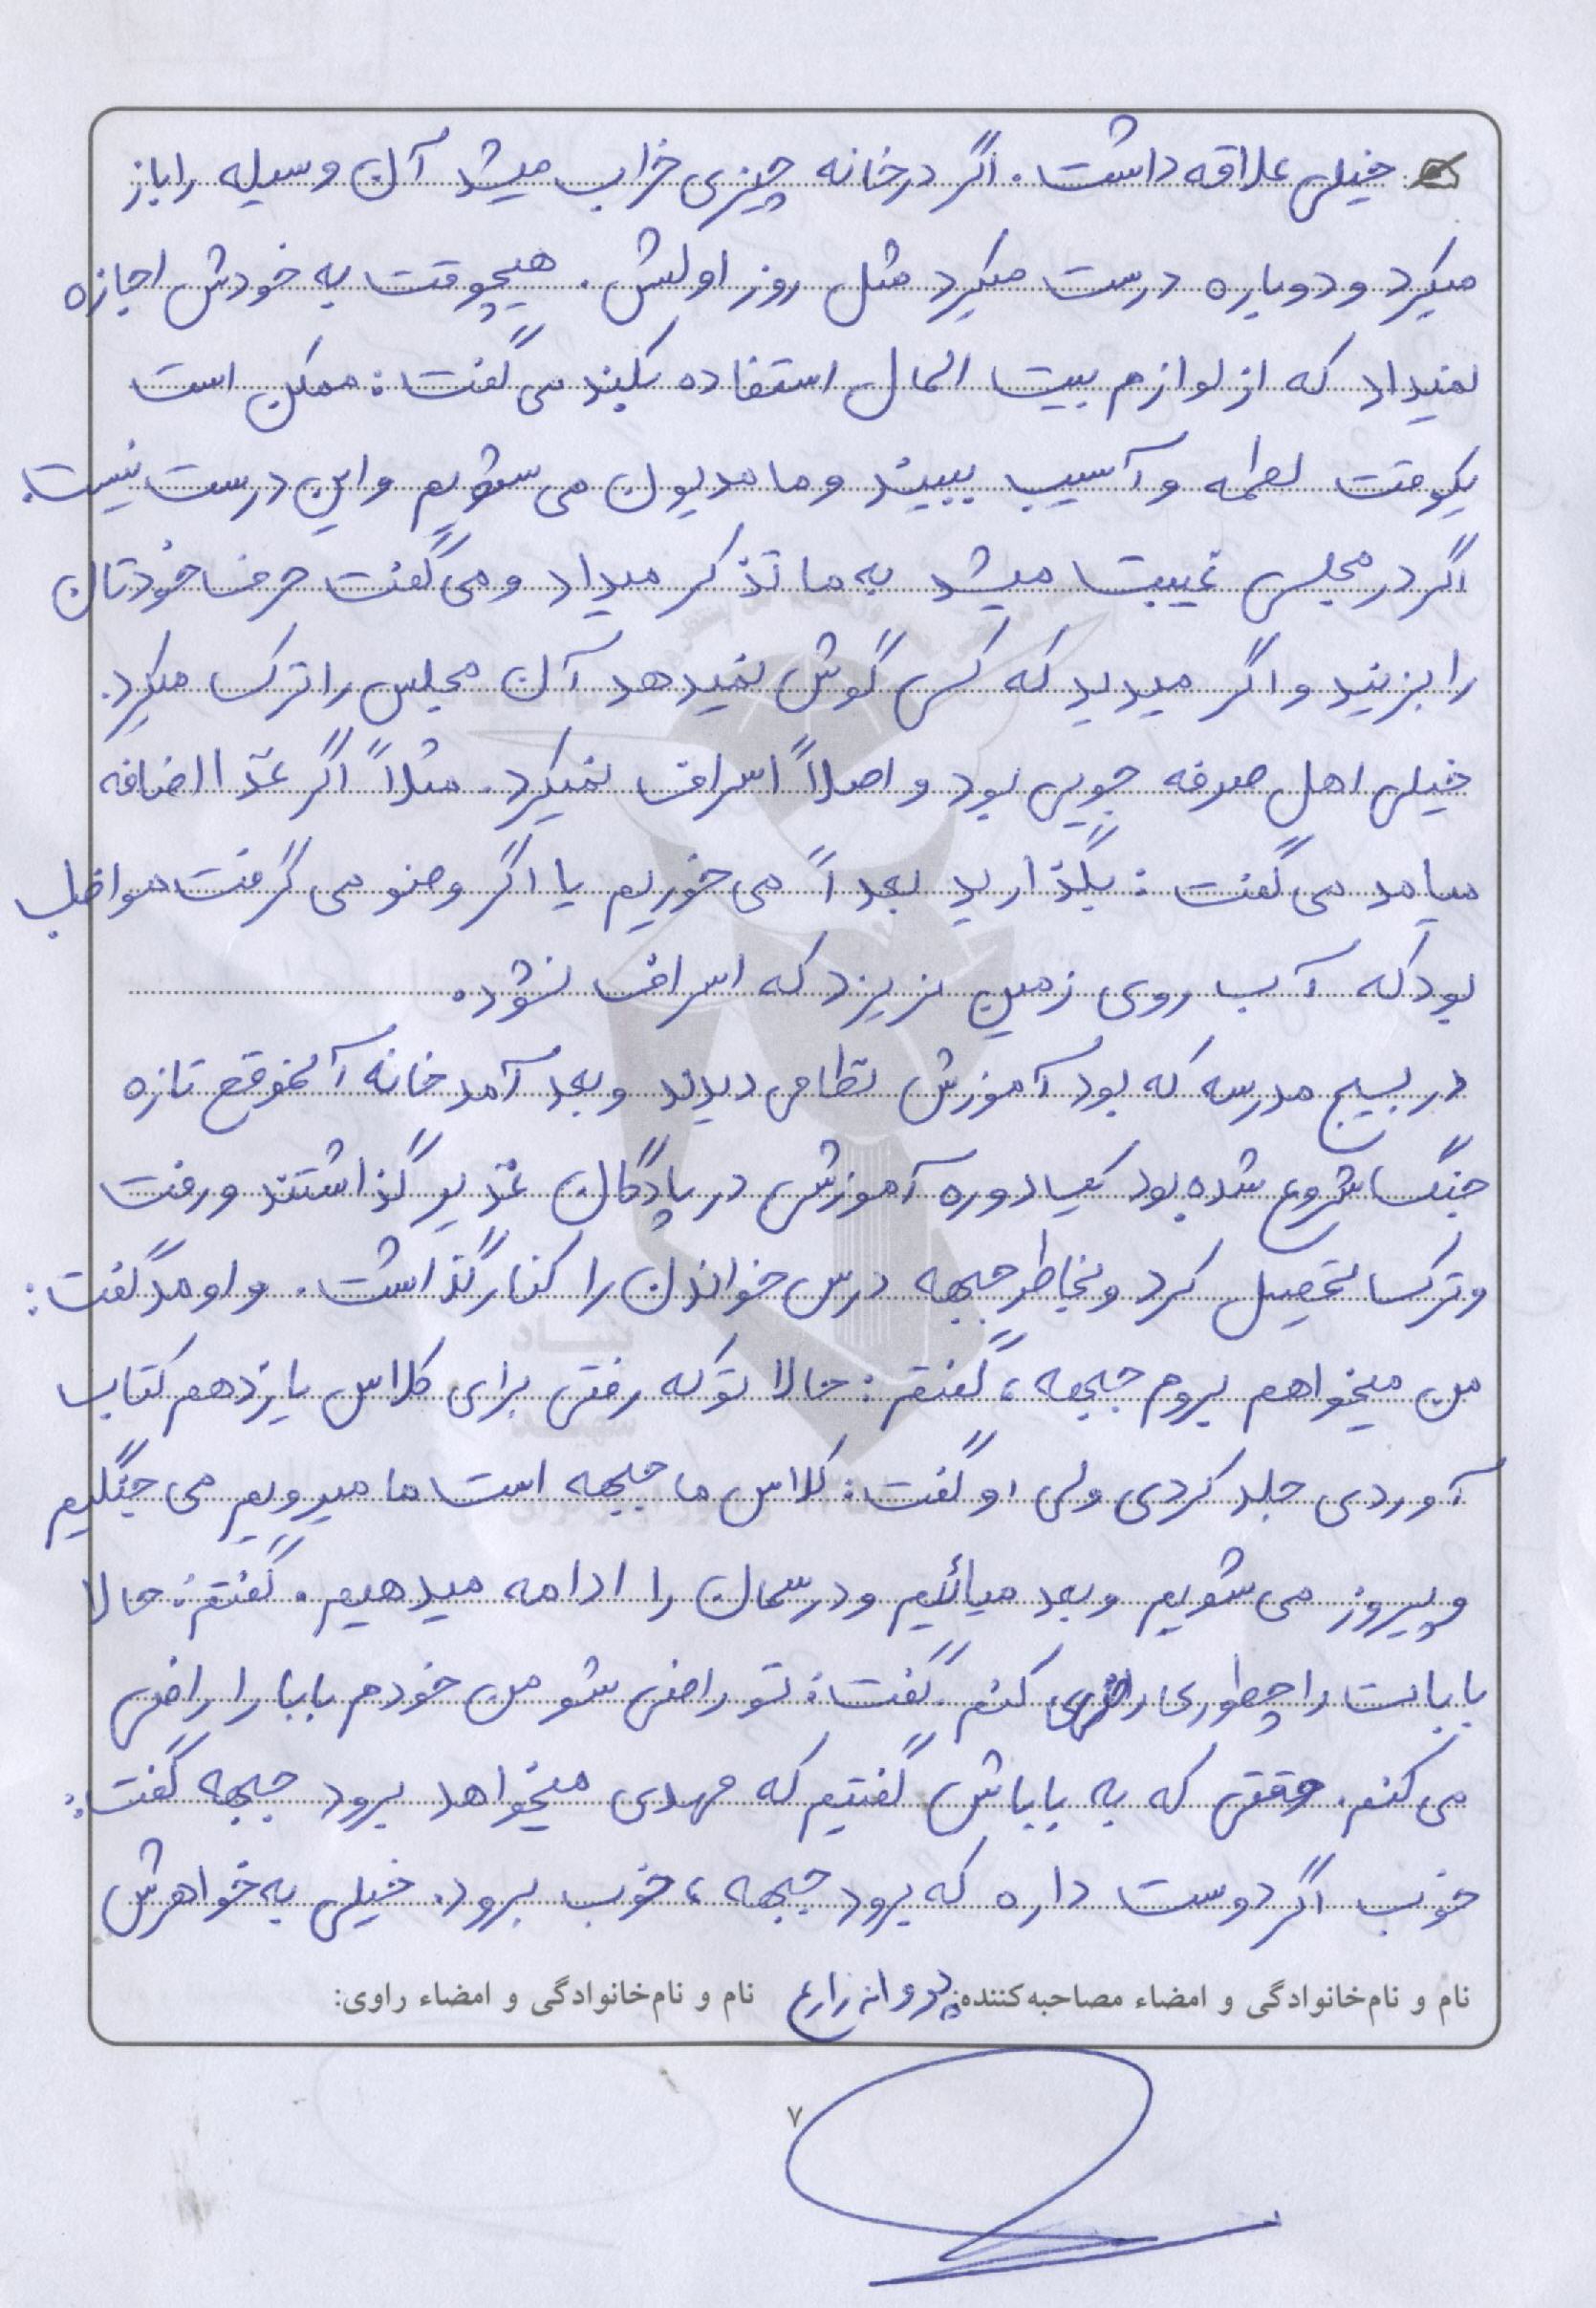 خیلی علاقه داشت. اگر در خانه چیزی خراب میشد آن وسیله را باز
میکرد و دوباره درست میکرد مثل روز اولش. هیچوقت به خودش اجازه
نمیداد که از لوازم بیت المال استفاده بکند می گفت: ممکن است
یکوقت لطمه و آسیب ببیند و ما مدیون می شویم و این درست نیست.
اگر در مجلسی غیبت میشد به ما تذکر میداد و می گفت حرف خودتان
را بزنید و اگر میدید که کسی گوش نمیدهد آن مجلس را ترک میکرد.
خیلی اهل صرفه جویی بود و اصلاً اسراف نمیکرد. مثلاً اگر غذا اضافه
میامد می گفت: بگذارید بعداً می خوریم یا اگر وضو می گرفت مواظب
بود که آب روی زمین نریزد که اسراف نشود.
در بسیج مدرسه که بود آموزش نظامی دیدند و بعد آمد خانه آنموقع تازه
جنگ شروع شده بود یک دوره آموزشی در پادگان غدیر گذاشتند و رفت
و ترک تحصیل کرد و بخاطر جبهه درس خواندن را کنار گذاشت. و اومد گفت:
من میخواهم بروم جبهه، گفتم: حالا تو که رفتی برای کلاس یازدهم کتاب
آوردی جلد کردی ولی او گفت: کلاس ما جبهه است ما میرویم می جنگیم
و پیروز می شویم و بعد میائیم و درسمان را ادامه میدهیم. گفتم: حالا
بابات را چطوری راضی کنم. گفت: تو راضی شو من خودم بابا را راضی
می کنم. وقتی که به باباش گفتیم که مهدی میخواهد برود جبهه گفت:
خوب اگر دوست داره که برود جبهه، خوب برود. خیلی به خواهرش
نام و نام‌خانوادگی و امضاء مصاحبه‌کننده: پروانه زارع نام و نام‌خانوادگی و امضاء راوی:
۷